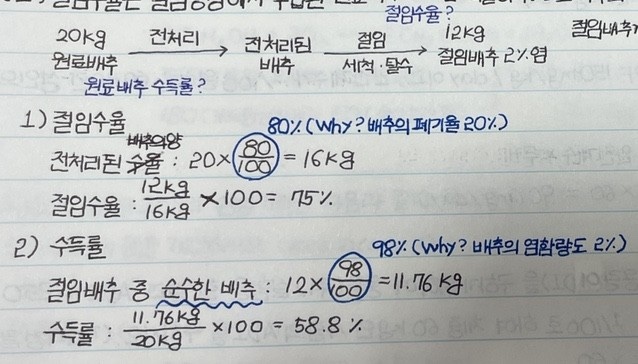 절임수율?
20kg 전처리 전처리된 절임 12kg
원료배추 배추 세척·탈수 절임배추 2%염
원료배추 수득률?
1) 절임수율
80% (Why? 배추의 폐기율 20%)
전처리된 배추의양 : 20 × 80/100 = 16kg
절임수율 : 12kg/16kg × 100 = 75%
2) 수득률
98% (Why? 배추의 염함량도 2%)
절임배추 중 순수한 배추 : 12 × 98/100 = 11.76 kg
수득률 : 11.76kg/20kg × 100 = 58.8 %